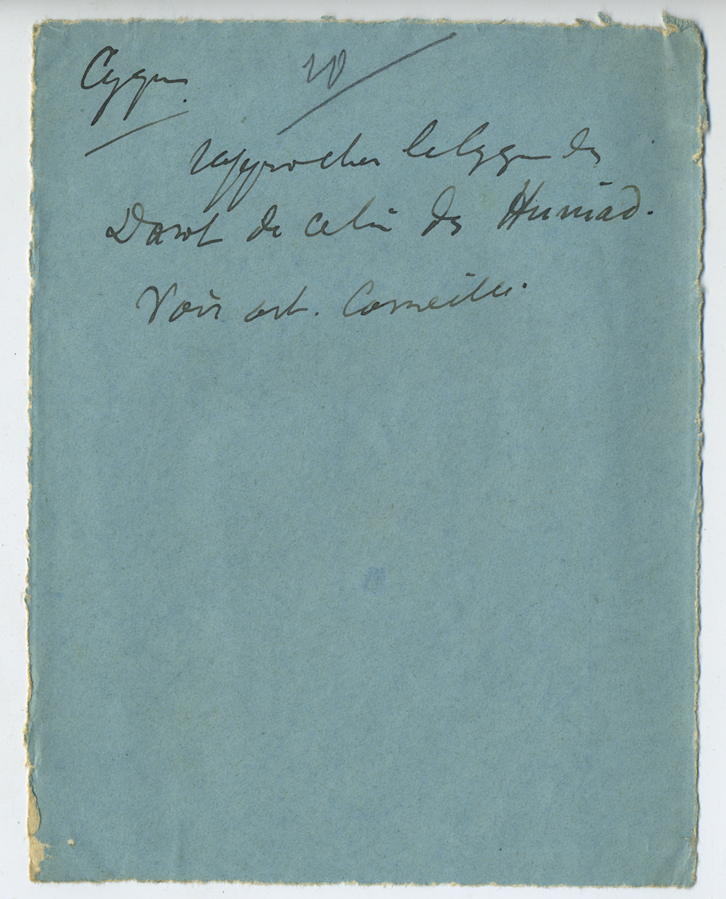 Cygne. 20
rapprocher le Cygne des
Darot de celui des Huniad.
Voir art. Corneille.